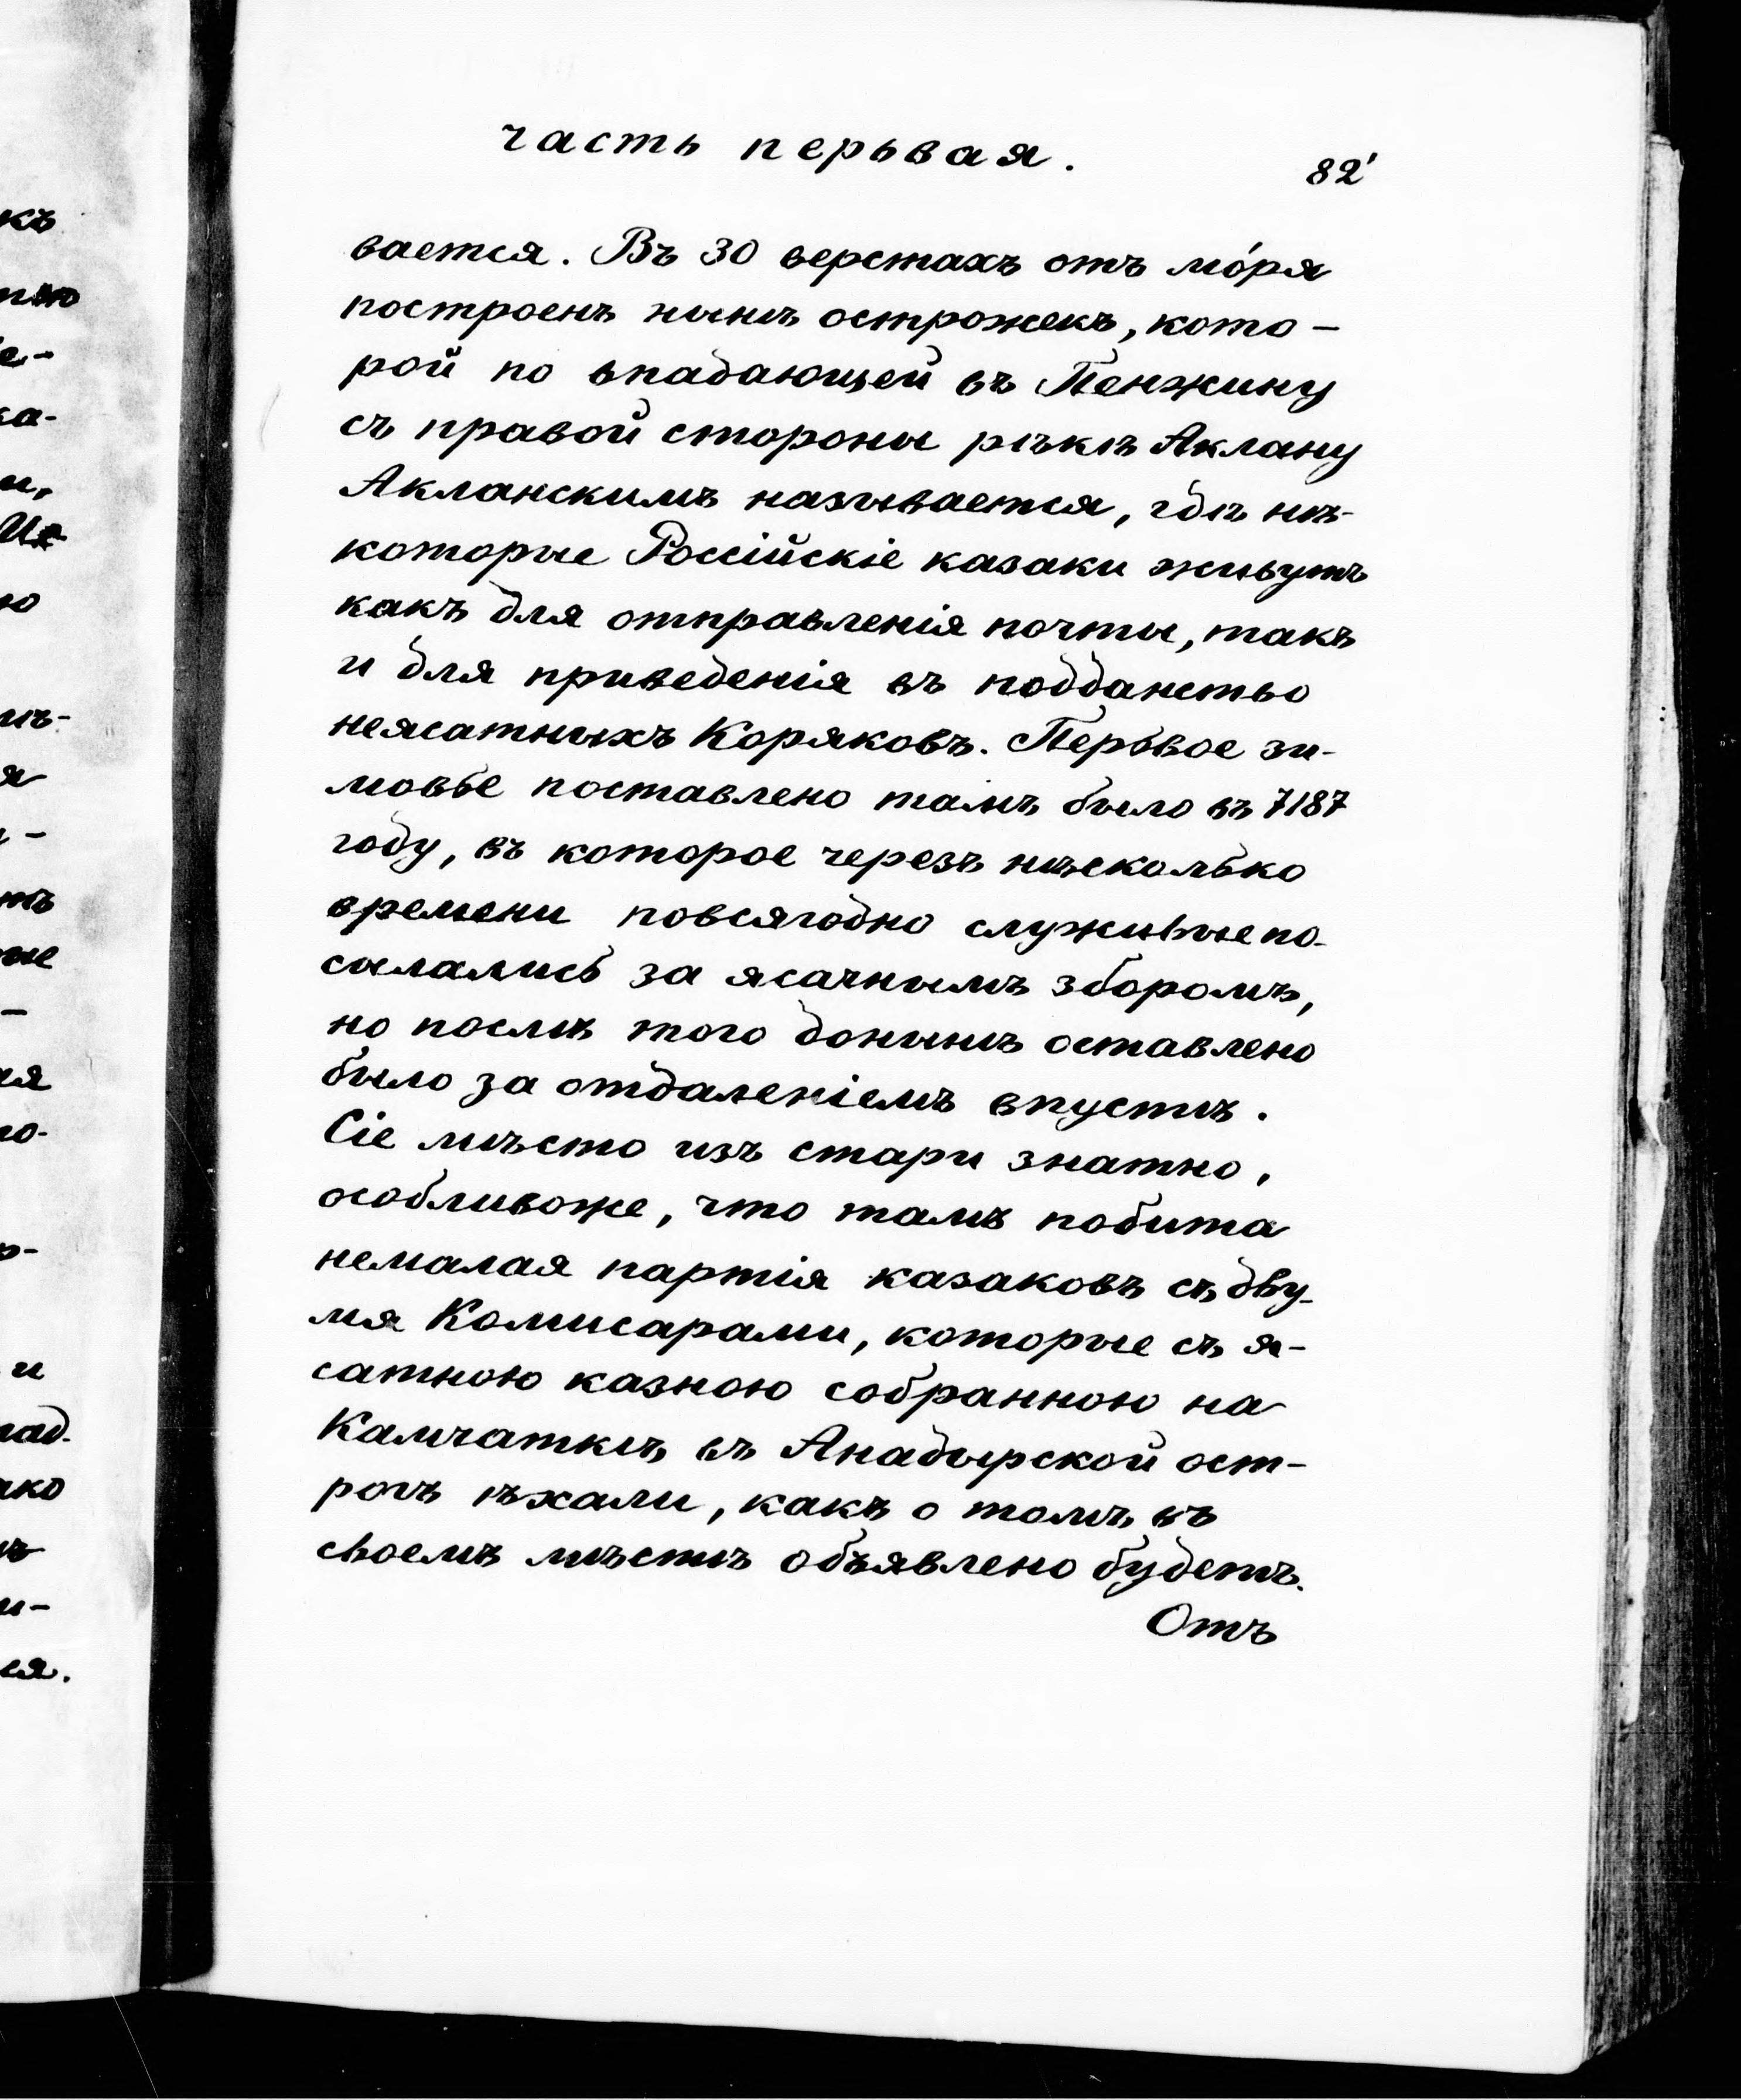 часть перьвая.
82'
вается. Въ 30 верстахъ отъ мо́ря
построенъ нынѣ острожекъ, кото-
рой по впадающей въ Пенжину
съ правой стороны рѣкѣ Аклану
Акланскимъ называется, гдѣ нѣ-
которые Россійскіе казаки живутъ
какъ для отправленія почты, такъ
и для приведенія въ подданство
неясатныхъ Коряковъ. Перьвое зи-
мовье поставлено тамъ было въ 7187
году, въ которое черезъ нѣсколько
времени повсягодно служивые по-
сылались за ясачнымъ зборомъ,
но послѣ того донынѣ оставлено
было за отдаленіемъ впустѣ.
Сіе мѣсто изъ стари знатно,
особливоже, что тамъ побита
немалая партія казаковъ съ дву-
мя Комисарами, которые съ я-
сатною казною собранною на
Камчаткѣ въ Анадырской ост-
рогъ ѣхали, какъ о томъ въ
своемъ мѣстѣ объявлено будетъ.
Отъ
къ
е-
ка-
и,
ю
мѣ-
я
тъ
ые
ая
го-
р-
и
над-
ако
и-
ся.